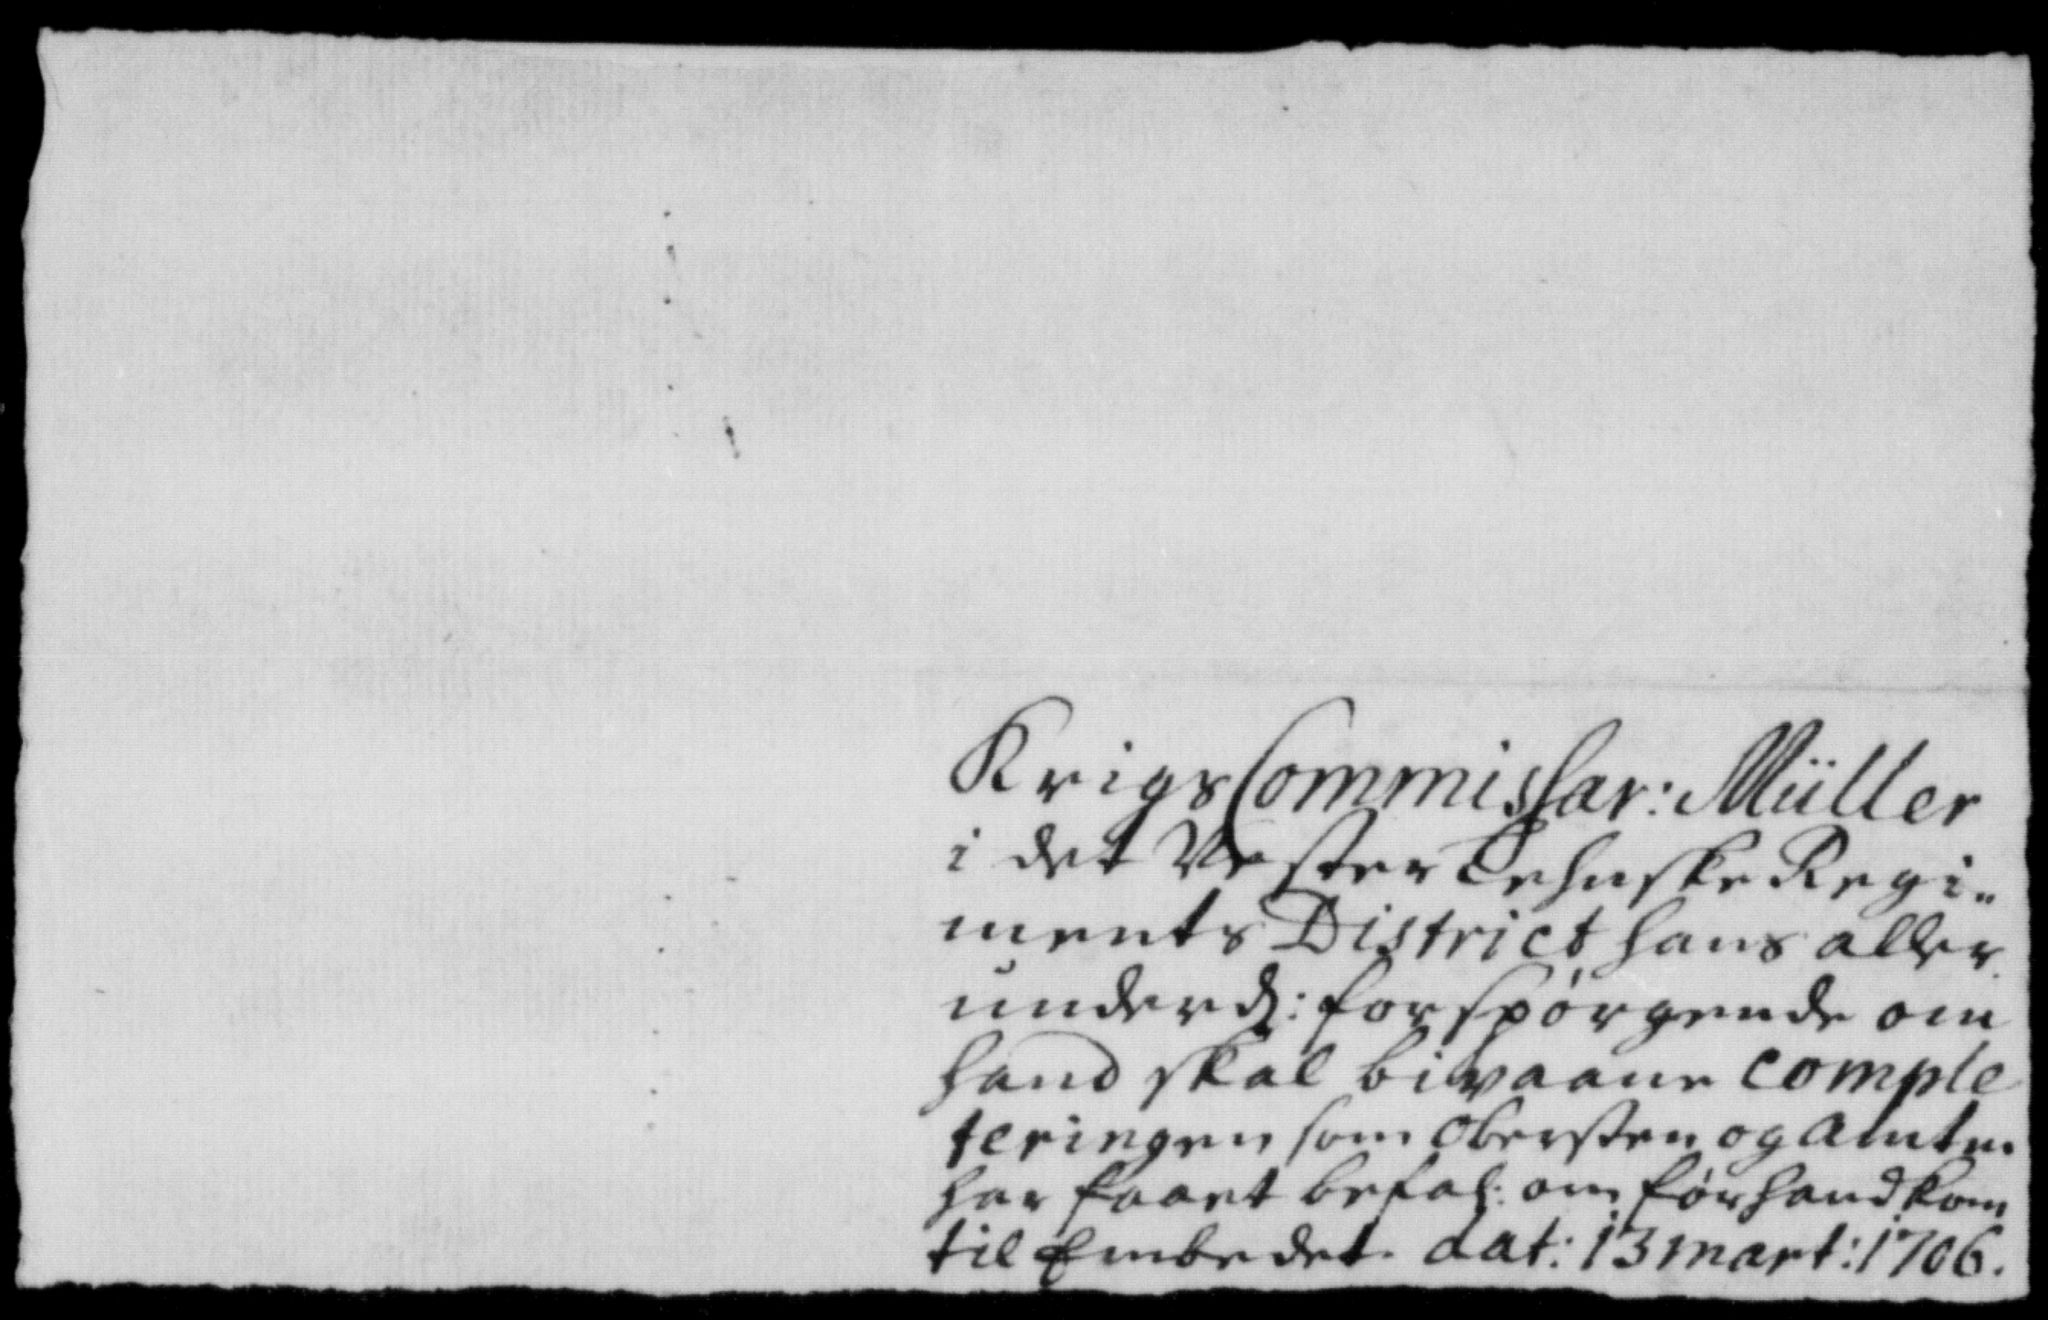 Krigs Commissar: Müller
i det Vester Lehnske Regi„
ments District hans aller
underd: forspørgende om
hand skal bivaane comple
teringen som Obersten og Amtm.
har faaet befal: om før hand kom
til Embedet. dat: 13 mart: 1706.